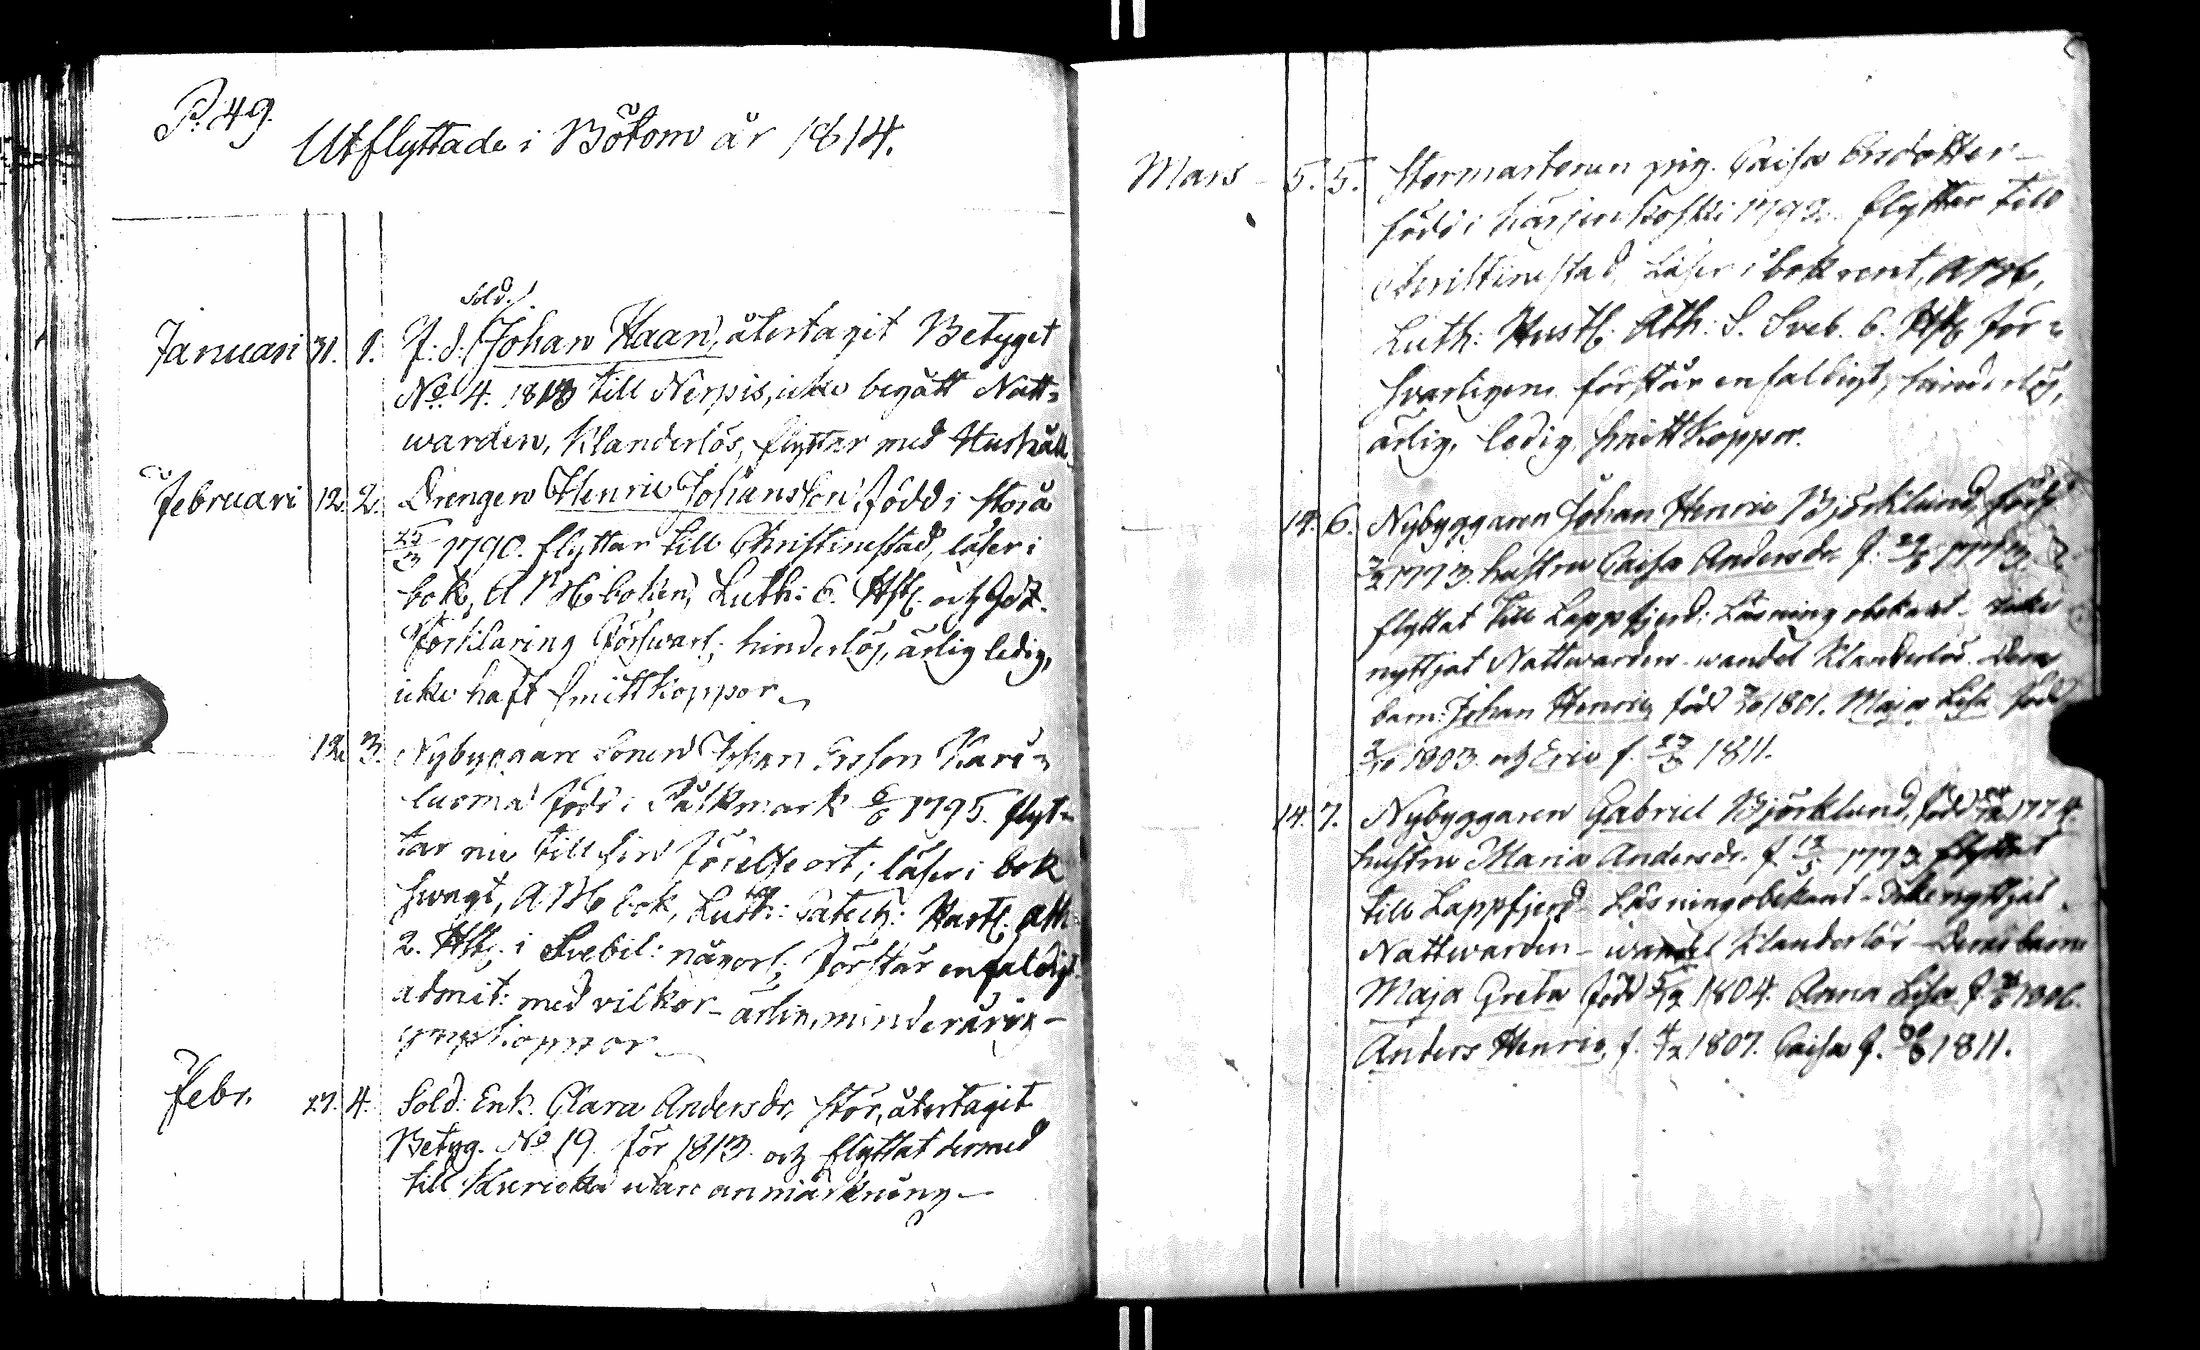 P. 49.
Utflyttade i Bötom år 1814.
Sold.
Januari 31. 1. F. d. Johan Haan, återtagit Betyget
No. 4. 1813 till Nerpis, icke begått Natt=
warden, Klanderlös, flyttar med Hushåll.
Februari 12. 2. Drengen Henric Johansson född i Storå
25/3 1790. flyttar till Christinestad, läser i
bok, A M boken, Luth: 6. Hst. och Göz.
Förklaring Försvarl; hinderlös, ärlig ledig,
icke haft Smittkoppor
12. 3. Nybyggare Sonen Johan Ersson Kari=
luoma född i Pålkmark 6/6 1795. flyt=
tar nu till sin Förelse ort; läser i bok
swagt, A. M bok, Luth: Catech: Hustl. Ath.
2. Hst. i Svebil: någorl; Förstår enfaldigt
admit: med vilkor - ärlig, minderårig -
Febr. 27. 4. Sold: Enk. Clara Andersdr. Stor, återtagit
Betyg. No 19. för 1813. och flyttat dermed
till Kuricka utan anmärkning
Mars 5. 5. pig. Caisa Ersdotter
född i 1793. flyttar till
Christinestad, Läser i bok rent, A M b,
Luth: Hustl: Ath: S. Sveb. 6. Hst för=
svarligen. förstår enfaldigt, hinderlös,
ärlig, ledig, Smittkoppor.
14. 6. Nybyggaren Johan Henric Björklund, född
1773. hustru Caisa Andersdr. f. 1773.
flyttat till Lappfjerd: Läsning obekant - icke
nyttjat Nattwarden - wandel Klanderlös. Dera
barn: Johan Henric, född 1801. Maja Lisa född
1803. och Eric f. 1811.
14. 7. Nybyggaren Gabriel Björklund, född 1774.
hustru Maria Andersdr. f. 1773. flyttat
till Lappfjerd - Läsning obekant - Icke nyttjat
Nattwarden - wandel Klanderlös - Deras barn
Maja Greta född 5/12 1804. Anna Lisa f. 1806.
Anders Henric, f. 4/2 1807. Caisa f. 1811.